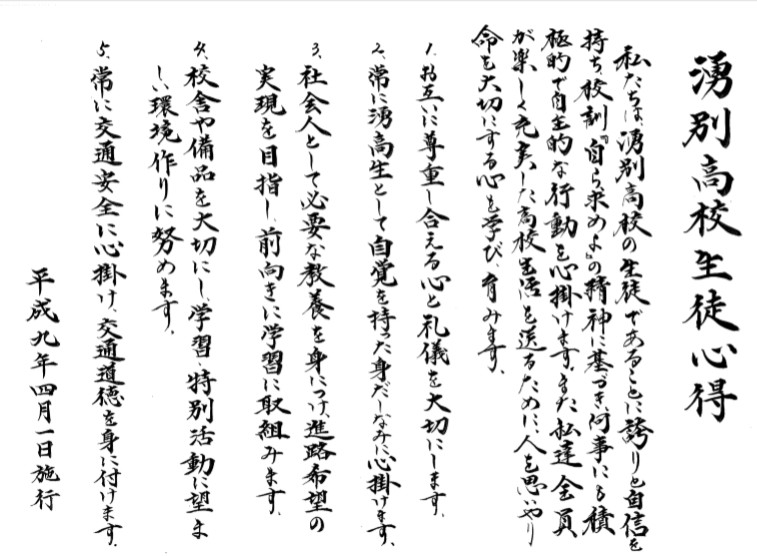 湧別高校生徒心得
私たちは、湧別高校の生徒であることに誇りと自信を
持ち、校訓『自ら求めよ』の精神に基づき、何事にも積
極的で自主的な行動を心掛けます。また私達全員
が楽しく充実した高校生活を送るために、人を思いやり
命を大切にする心を学び、育みます。
1、お互いに尊重し合える心と礼儀を大切にします。
2、常に湧高生として自覚を持った身だしなみに心掛けます。
3、社会人として必要な教養を身につけ、進路希望の
実現を目指し、前向きに学習に取組みます。
4、校舎や備品を大切にし、学習・特別活動に望ま
しい環境作りに努めます。
5、常に交通安全に心掛け、交通道徳を身に付けます。
平成九年四月一日施行